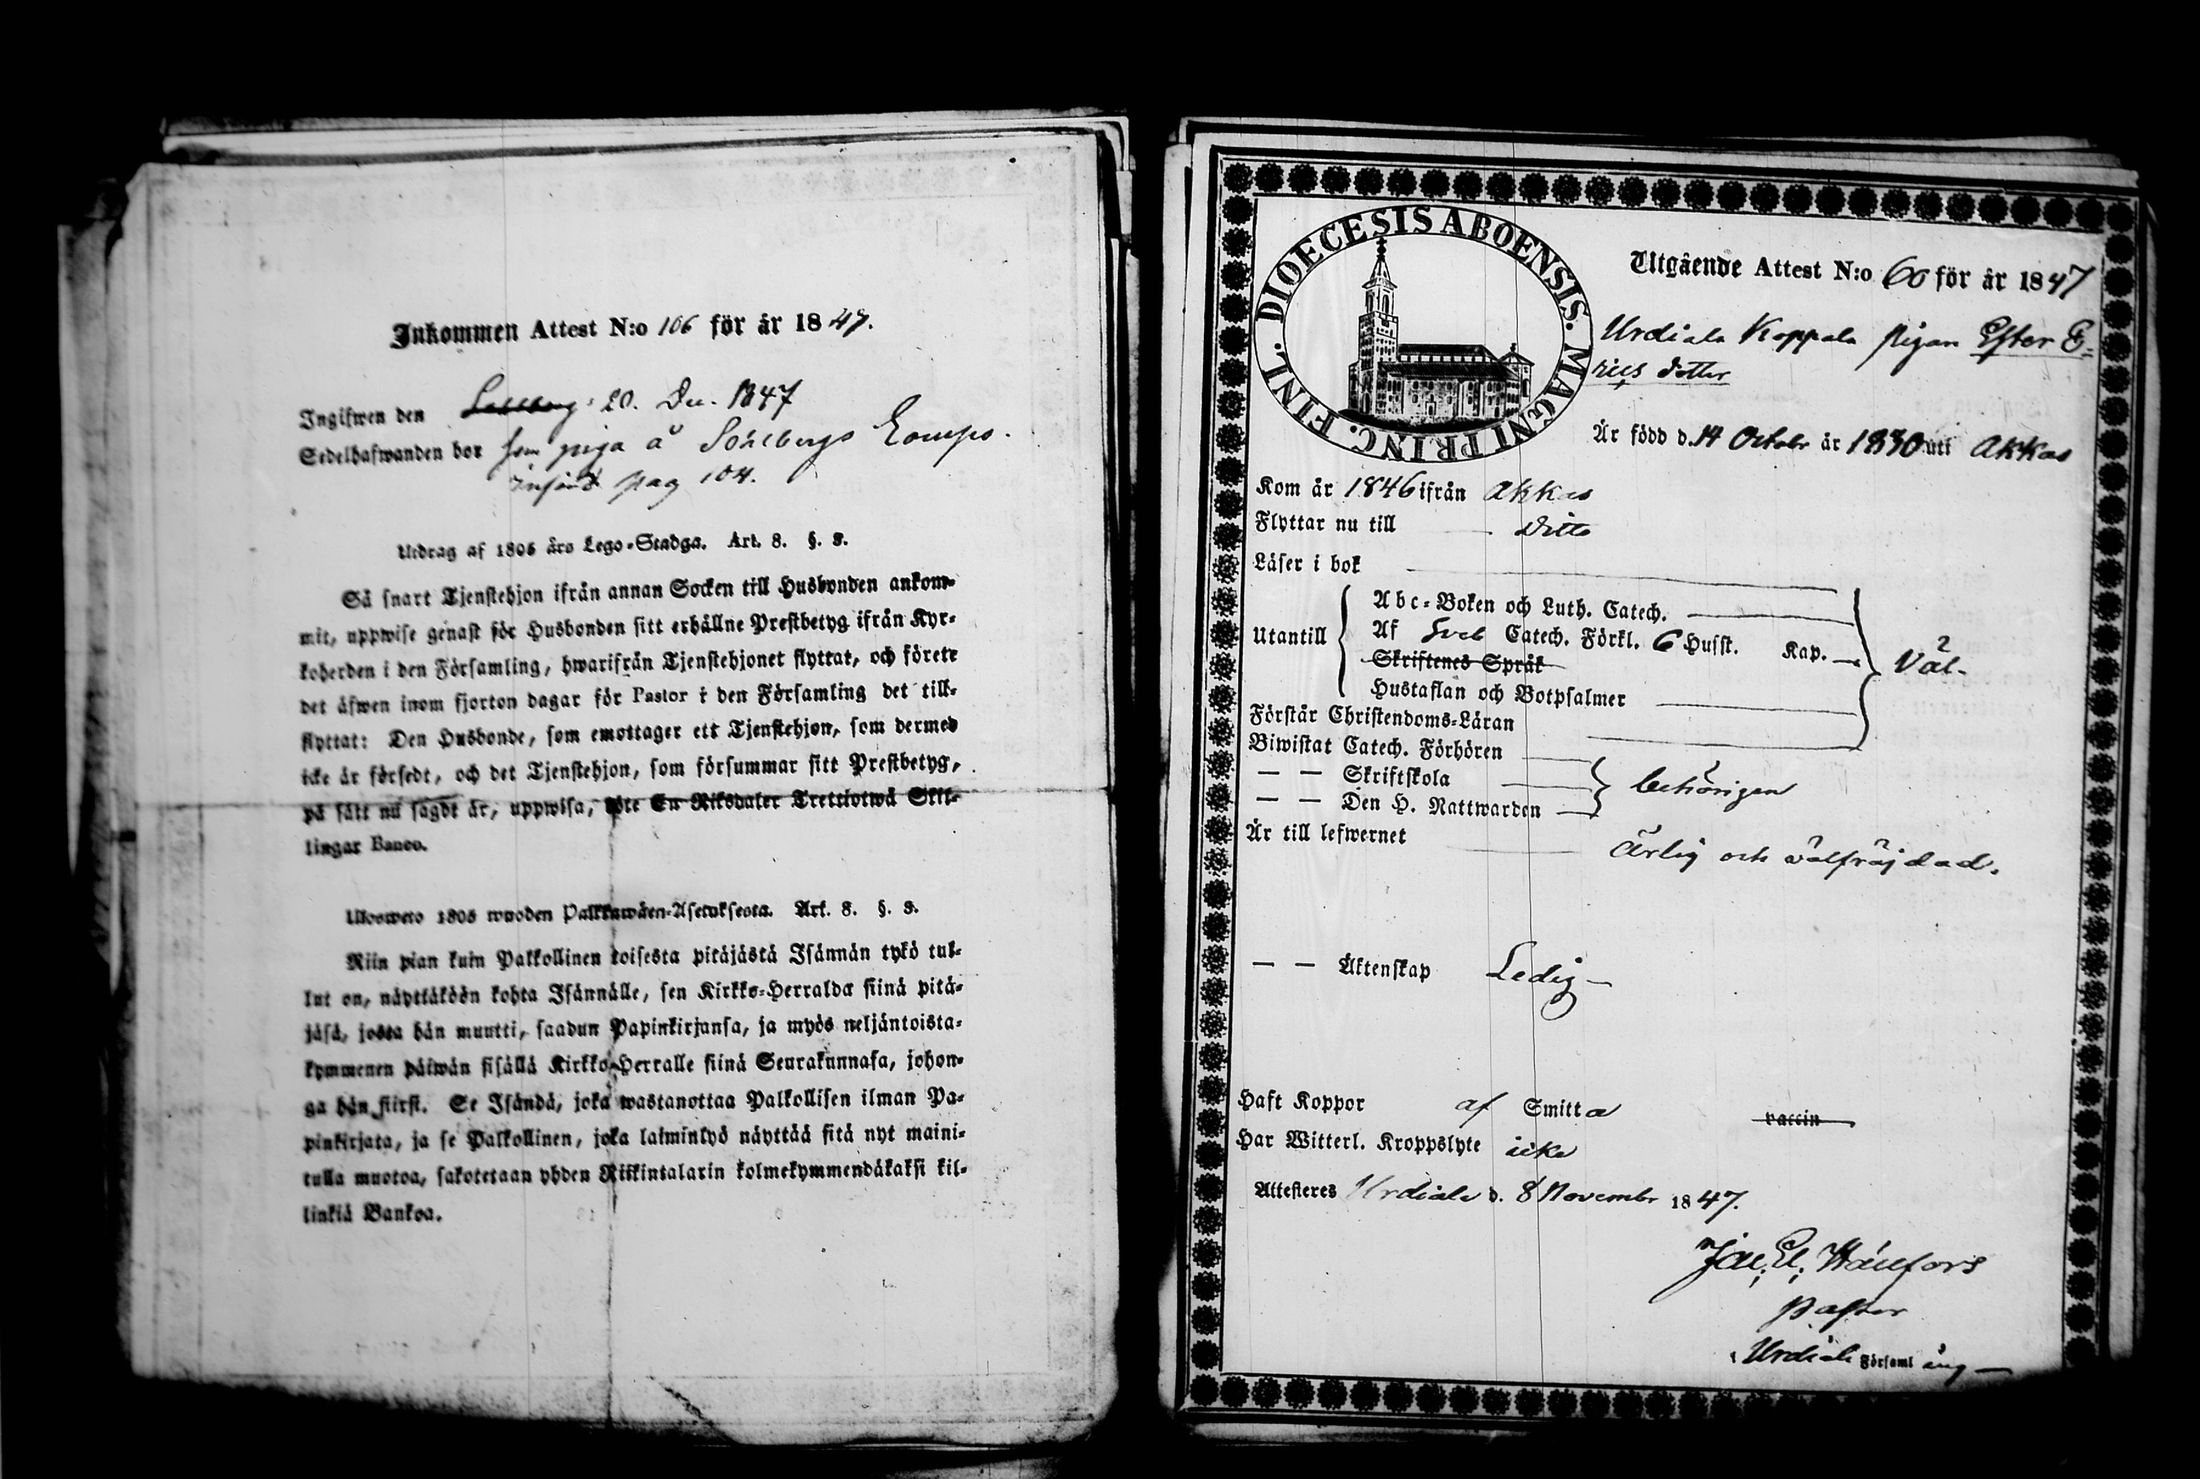 Inkommen Attest N:o 106 för år 1847.
Ingifwen den 20. Dec. 1847
Sedelhafwanden bor som piga å Sohlbergs
införd pag 104.
Utdrag af 1805 års Lego-Stadga. Art. 8. §. 3.
Så snart Tjenstehjon ifrån annan Socken till Husbonden ankom-
mit, uppwise genast för Husbonden sitt erhållne Prestbetyg ifrån Kyr-
koherden i den Församling, hwarifrån Tjenstehjonet flyttat, och förete
det äfwen inom fjorton dagar för Pastor i den Församling det till-
flyttat: Den Husbonde, som emottager ett Tjenstehjon, som dermed
icke är försedt, och det Tjenstehjon, som försummar sitt Prestbetyg,
på sätt nu sagdt är, uppwisa, böte En Riksdaler Trettiotwå Skil-
lingar Banco.
Ulosweto 1805 wuoden Palkkawäen-Asetuksesta. Art. 8. §. 3.
Niin pian kuin Palkollinen toisesta pitäjästä Isännän tykö tul-
lut on, näyttäköön kohta Isännälle, sen Kirkko-Herralda siinä pitä-
jäsä, josta hän muutti, saadun Papinkirjansa, ja myös neljäntoista-
kymmenen päiwän sisällä Kirkko-Herralle siinä Seurakunnasa, johon-
ga hän siirsi. Se Isändä, joka wastanottaa Palkollisen ilman Pa-
pinkirjata, ja se Palkollinen, joka laiminlyö näyttää sitä nyt maini-
tulla muotoa, sakotetaan yhden Riikintalarin kolmekymmendäkaksi kil-
linkiä Bankoa.
DIOECESIS ABOENSIS. MAGNI PRINC. FINL.
Utgående Attest N:o 60 för år 1847
Urdiala Koppala pigan Ester E-
rics dotter
Är född d. 14 Octobr år 1830 uti Akkas
Kom år 1846 ifrån Akkas
Flyttar nu till Ditto
Läser i bok
Utantill
Abc-Boken och Luth. Catech.
Af Sveb Catech. Förkl. 6 Husst. Kap.
Skriftenes Språk
Hustaflan och Botpsalmer
Väl
Förstår Christendoms-Läran
Biwistat Catech. Förhören
— — Skriftskola
— — Den H. Nattwarden
behörigen
Är till lefwernet ärlig och välfräjdad.
— — Äktenskap Ledig
Haft Koppor af Smitta vaccin
Har Witterl. Kroppslyte icke
Attesteres Urdiala d. 8 Novembr 1847.
Pastor
Urdiala Församling